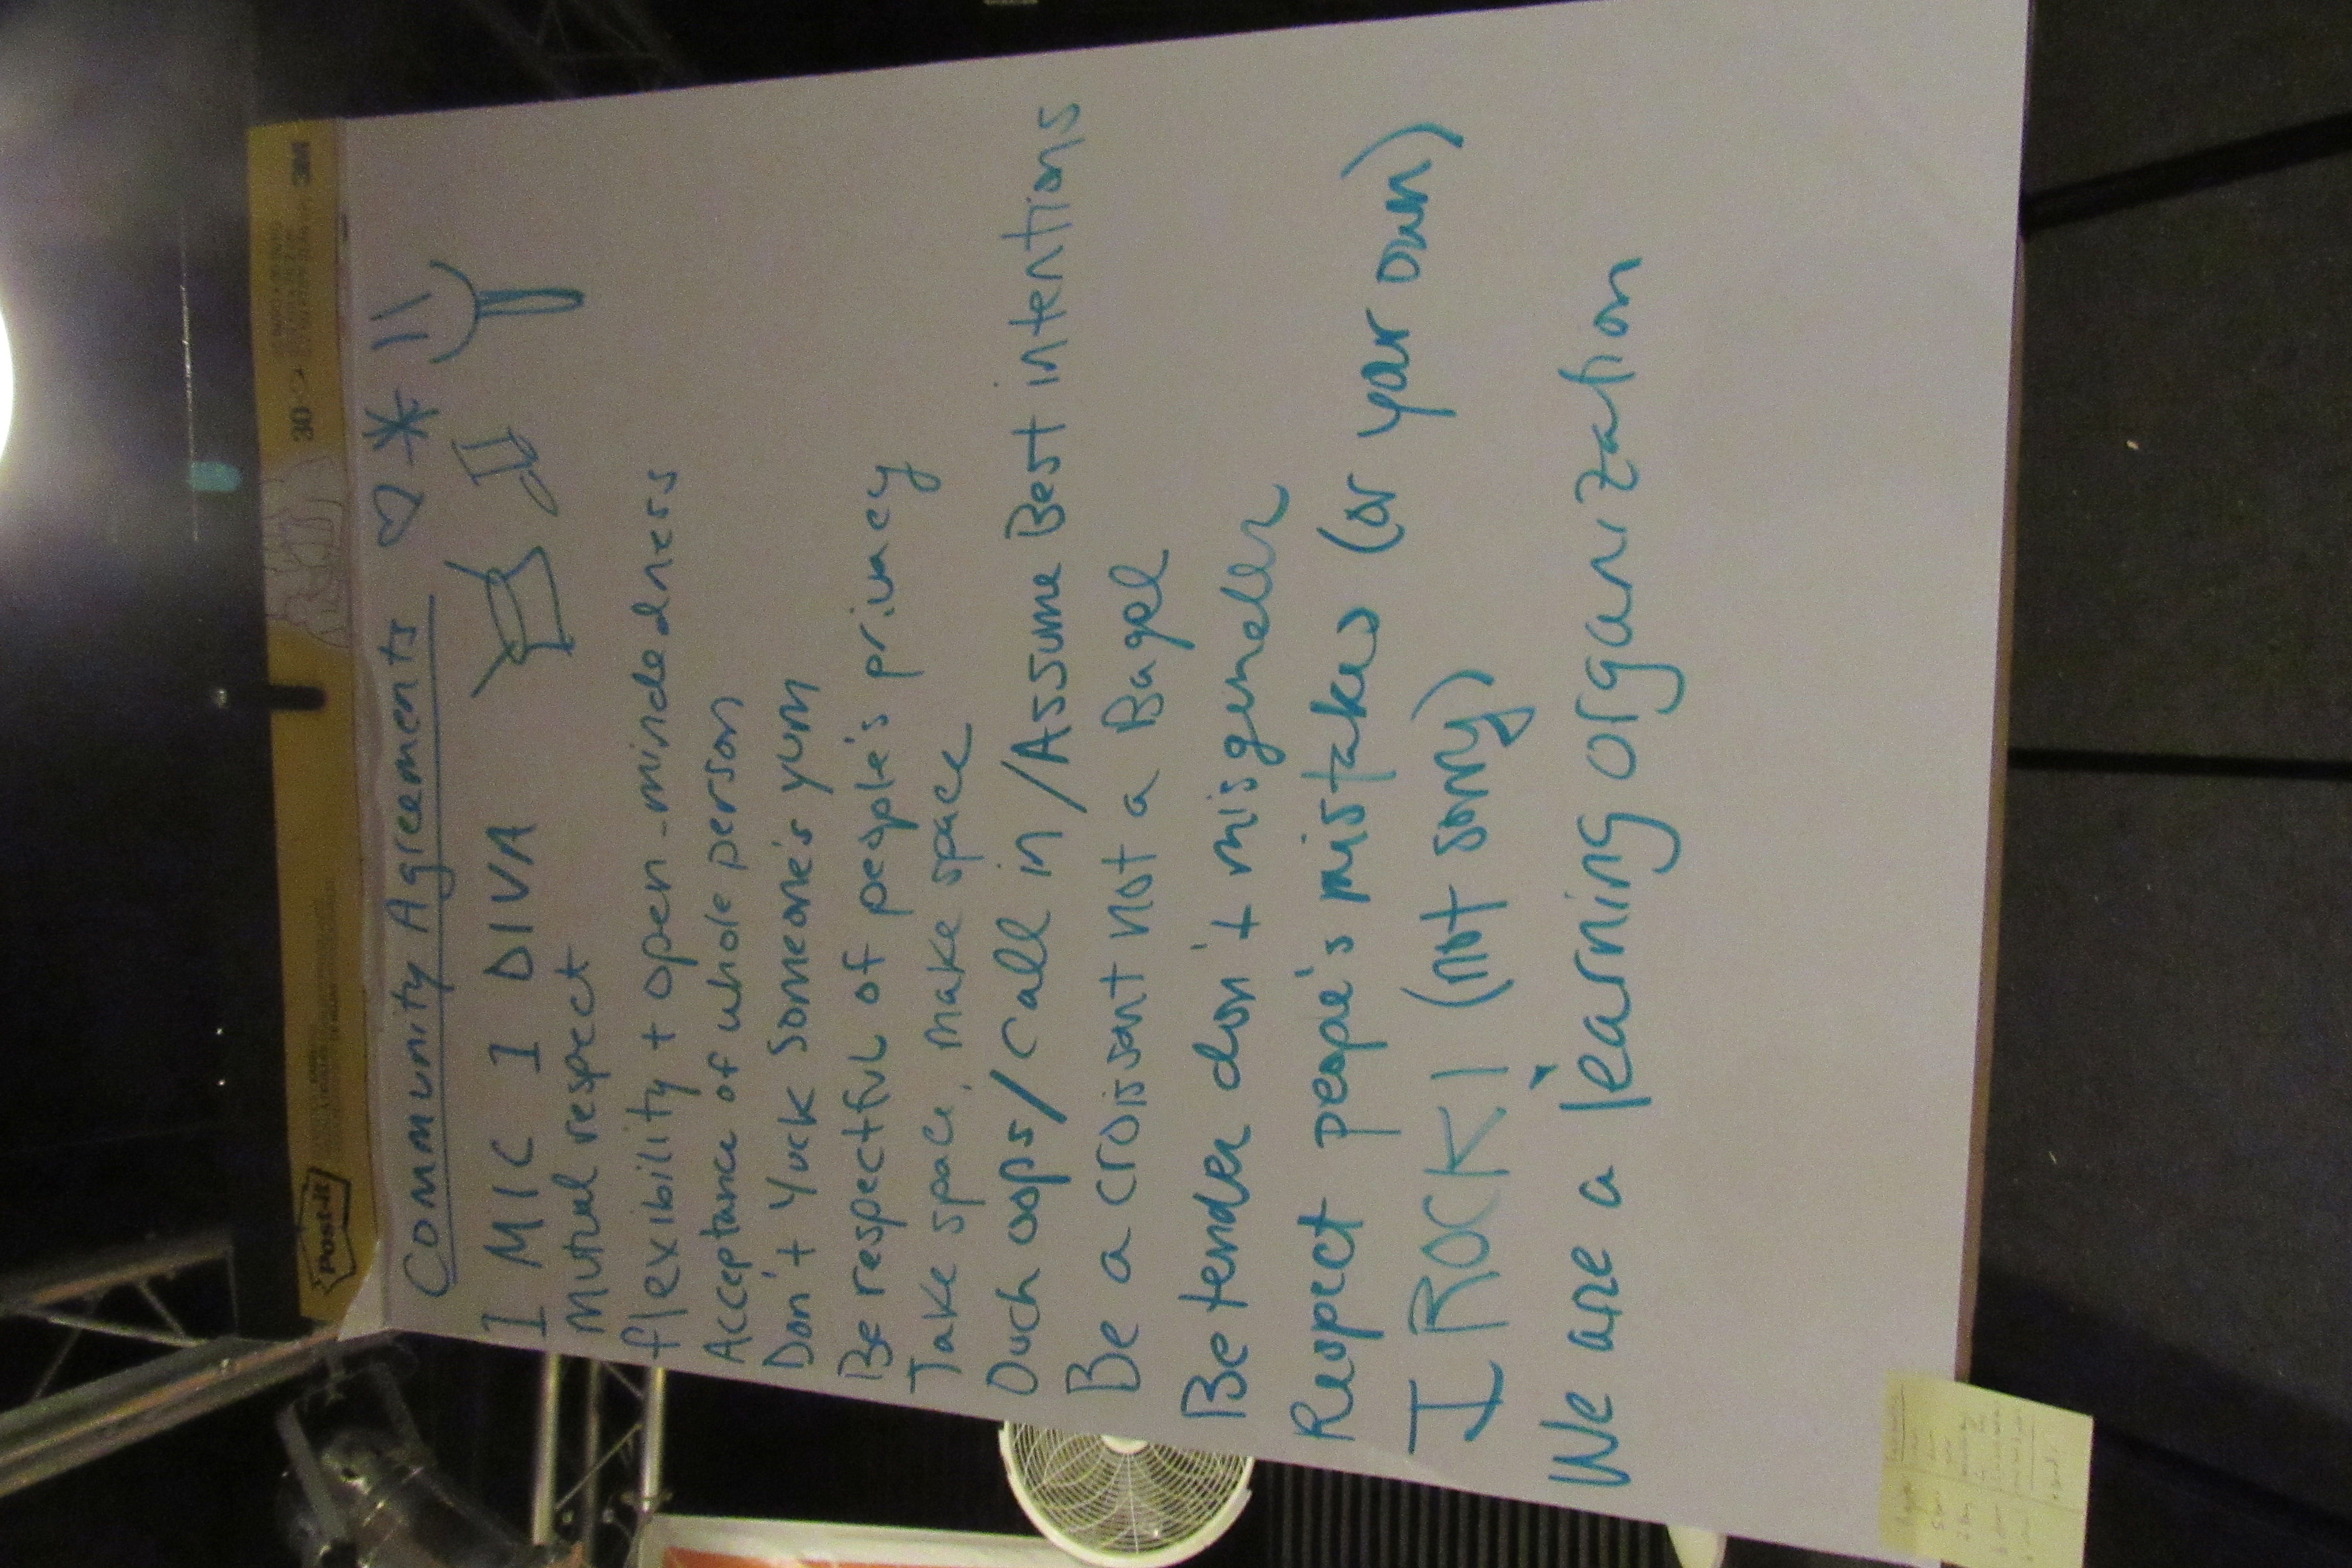 Post-it
30
3M
Community Agreements
1 MIC 1 DIVA
Mutual respect
flexibility + open-mindedness
Acceptance of whole person
Don't Yuck Someone's yum
Be respectful of people's privacy
Take space, make space
Ouch oops/Call in/Assume Best intentions
Be a croissant not a Bagel
Be tender don't misgender
Respect people's mistakes (or your own)
I ROCK! (not sorry)
We are a learning organization